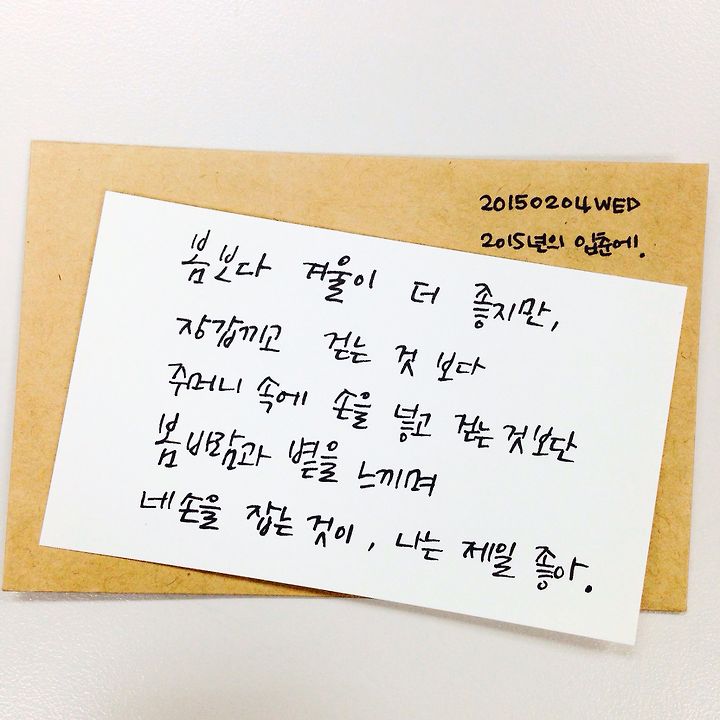 20150204WED
2015년의 입춘에.
봄보다 겨울이 더 좋지만,
장갑끼고 걷는 것 보다
주머니 속에 손을 넣고 걷는것보단
봄바람과 볕을 느끼며
네손을 잡는 것이, 나는 제일 좋아.